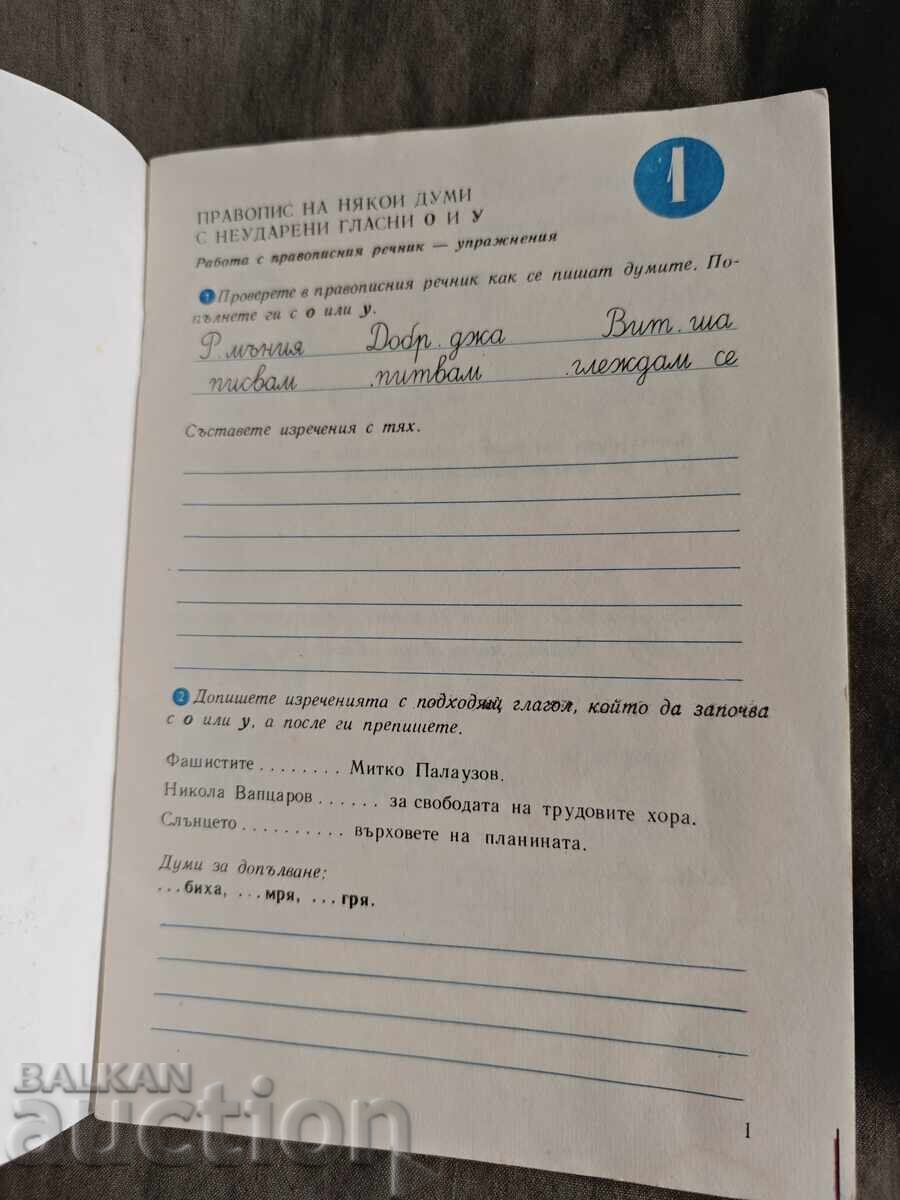 1
ПРАВОПИС НА НЯКОИ ДУМИ
С НЕУДАРЕНИ ГЛАСНИ О И У
Работа с правописния речник — упражнения
1 Проверете в правописния речник как се пишат думите. По-
пълнете ги с о или у.
Р.мъния Добр.джа Вит.ша
.писвам .питвам .глеждам се
Съставете изречения с тях.
2 Допишете изреченията с подходящ глагол, който да започва
с о или у, а после ги препишете.
Фашистите ........ Митко Палаузов.
Никола Вапцаров ...... за свободата на трудовите хора.
Слънцето .......... върховете на планината.
Думи за допълване:
...биха, ...мря, ...гря.
1
BALKAN
auction